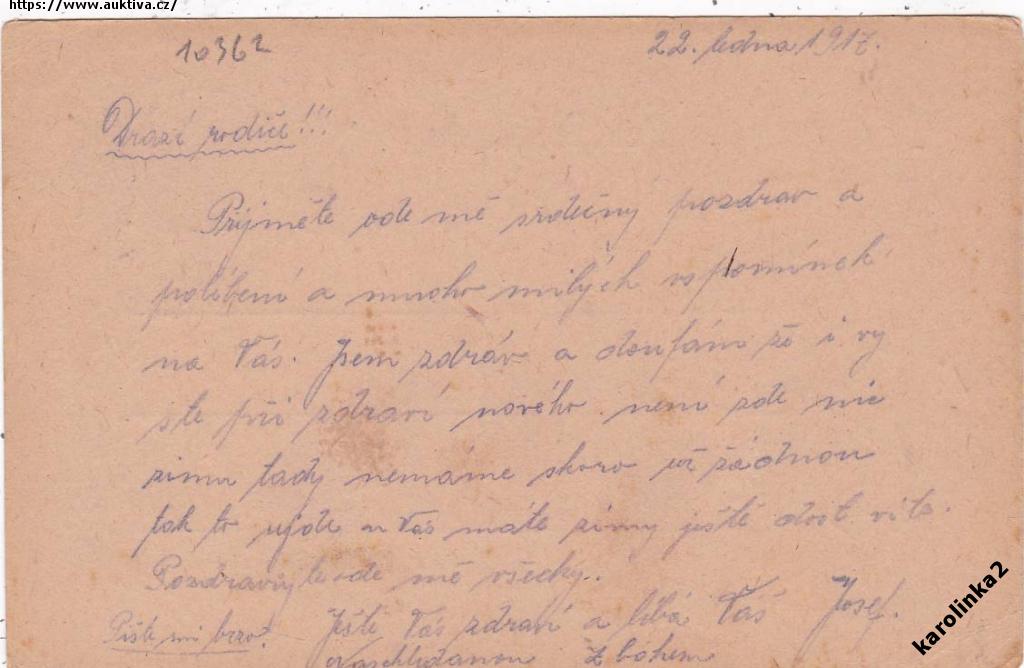 https://www.auktiva.cz/
10362
22. ledna 1917.
Drazí rodiče!!!
Přijměte ode mě srdečný pozdrav a
políbení a mnoho milých vspomínek
na Vás. Jsem zdráv a doufám že i vy
ste při zdraví nového není zde nic
zimu tady nemáme skoro už žádnou
tak to ujde u Vás máte zimy ještě dost
Pozdravujte ode mě všecky..
Ještě Vás zdraví a líbá Váš Josef.
Pište mi brzo!
Naschledanou Z bohem
karolinka2